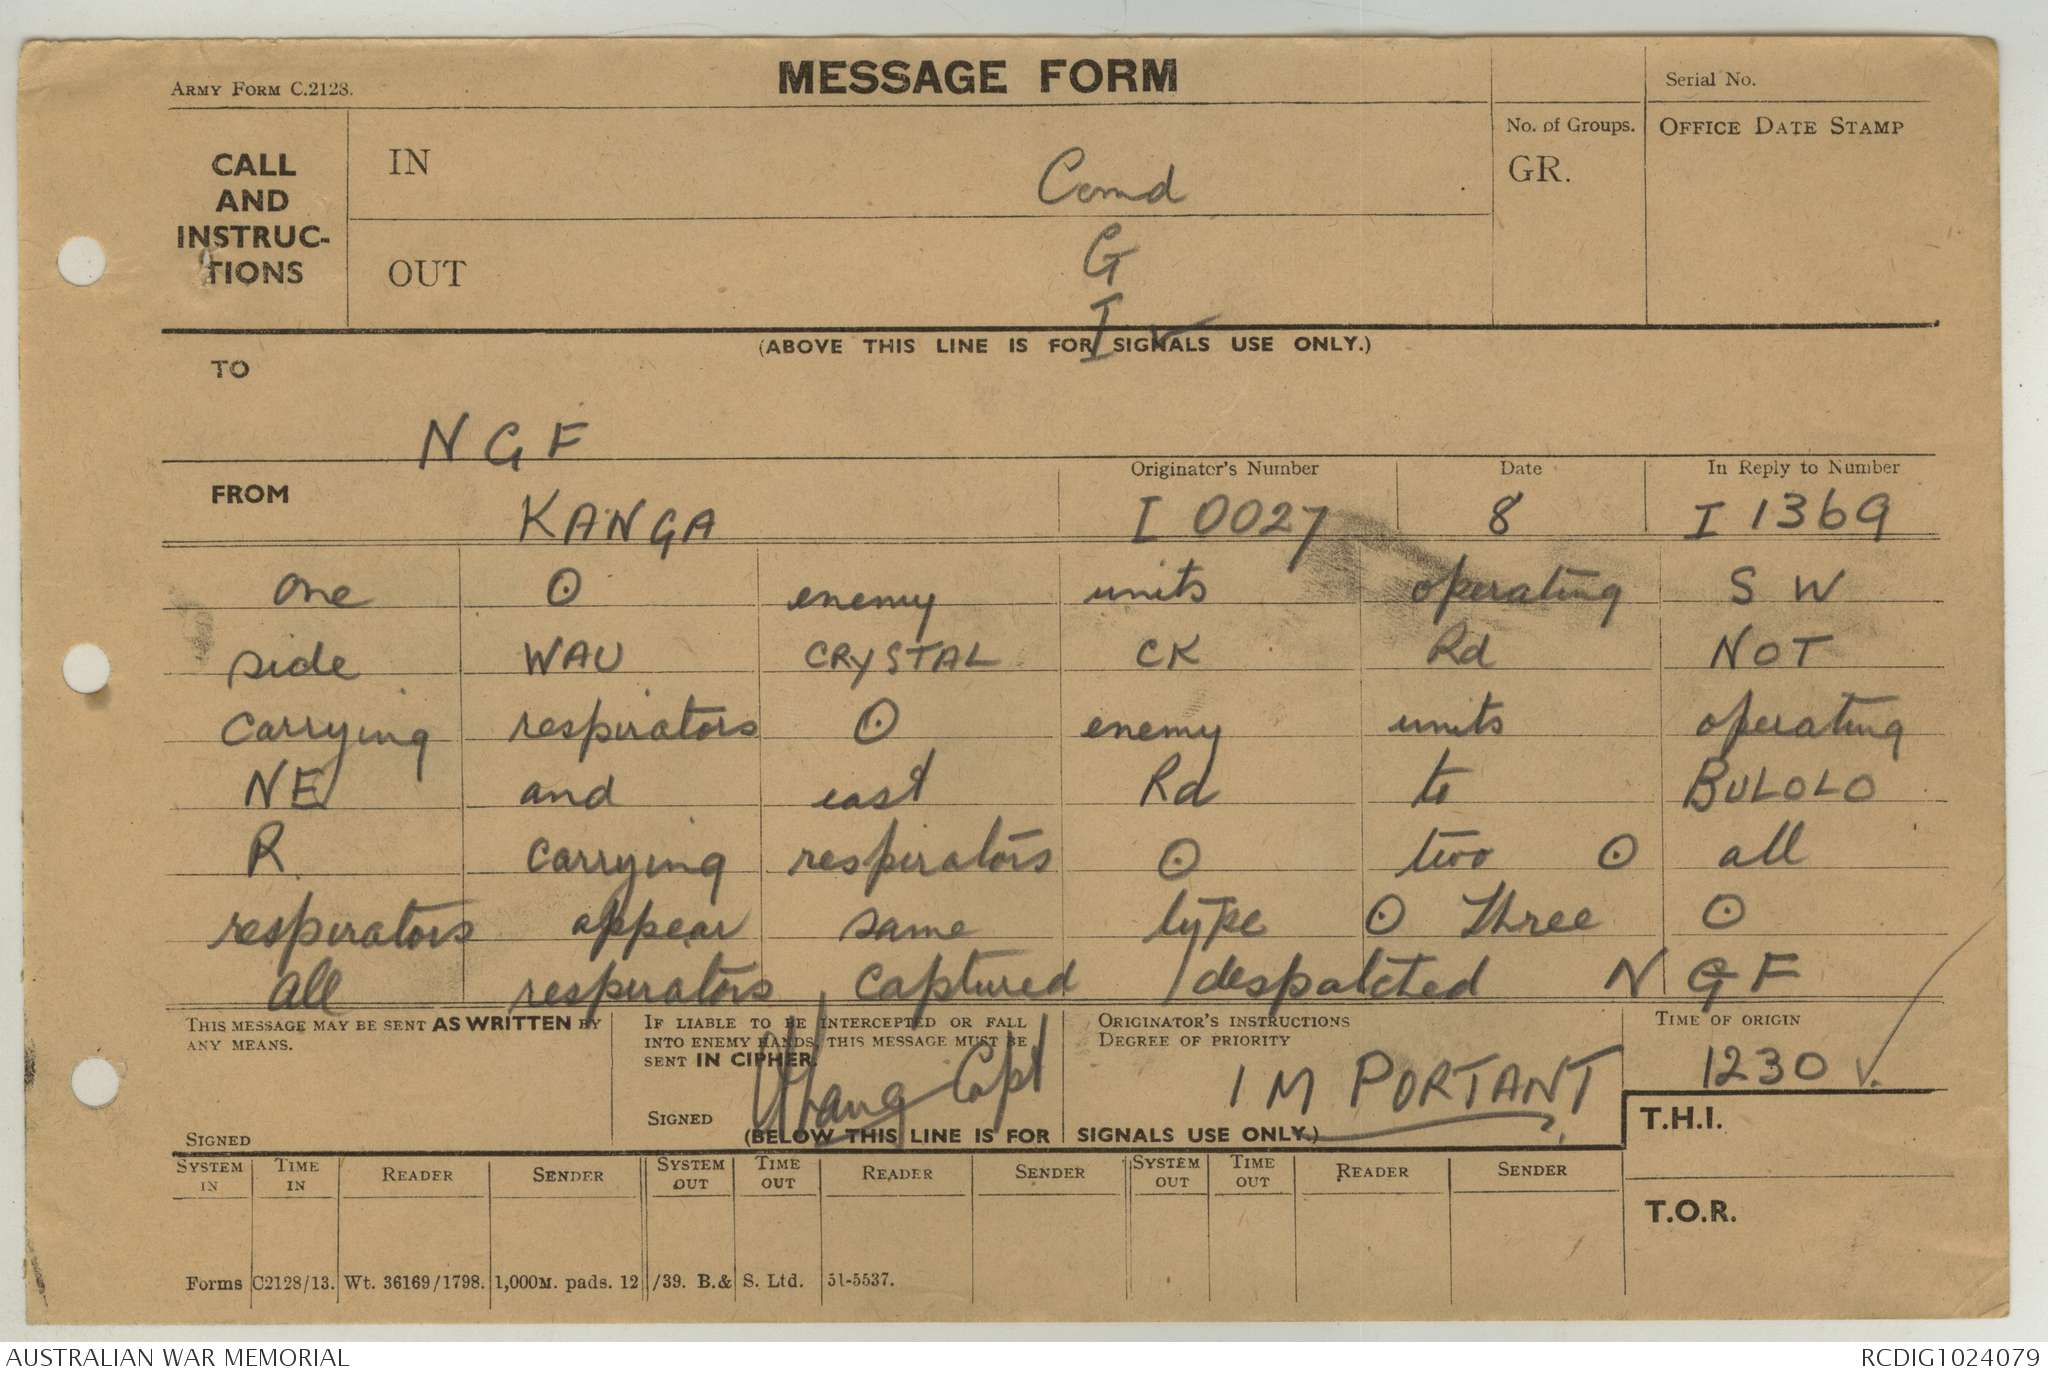 MESSAGE FORM
ARMY FORM C.2128.
Serial No.
CALL AND INSTRUC-TIONS
IN
Comd
No. of Groups.
GR.
OFFICE DATE STAMP
OUT
G
I
(ABOVE THIS LINE IS FOR SIGNALS USE ONLY.)
TO
NGF
FROM
KANGA
Originator's Number
I 0027
Date
8
In Reply to Number
I 1369
one ⊙ enemy units operating S W
side WAU CRYSTAL CK Rd NOT
carrying respirators ⊙ enemy units operating
NE and east Rd to BULOLO
R carrying respirators ⊙ two ⊙ all
respirators appear same type ⊙ Three ⊙
all respirators captured despatched N G F
THIS MESSAGE MAY BE SENT AS WRITTEN BY
ANY MEANS.
SIGNED
IF LIABLE TO BE INTERCEPTED OR FALL
INTO ENEMY HANDS, THIS MESSAGE MUST BE
SENT IN CIPHER.
SIGNED
Capt
ORIGINATOR'S INSTRUCTIONS
DEGREE OF PRIORITY
IMPORTANT
TIME OF ORIGIN
1230
T.H.I.
(BELOW THIS LINE IS FOR SIGNALS USE ONLY.)
SYSTEM IN TIME IN READER SENDER SYSTEM OUT TIME OUT READER SENDER SYSTEM OUT TIME OUT READER SENDER
T.O.R.
Forms C2128/13. Wt. 36169/1798. 1,000M. pads. 12/39. B.& S. Ltd. 51-5537.
AUSTRALIAN WAR MEMORIAL
RCDIG1024079